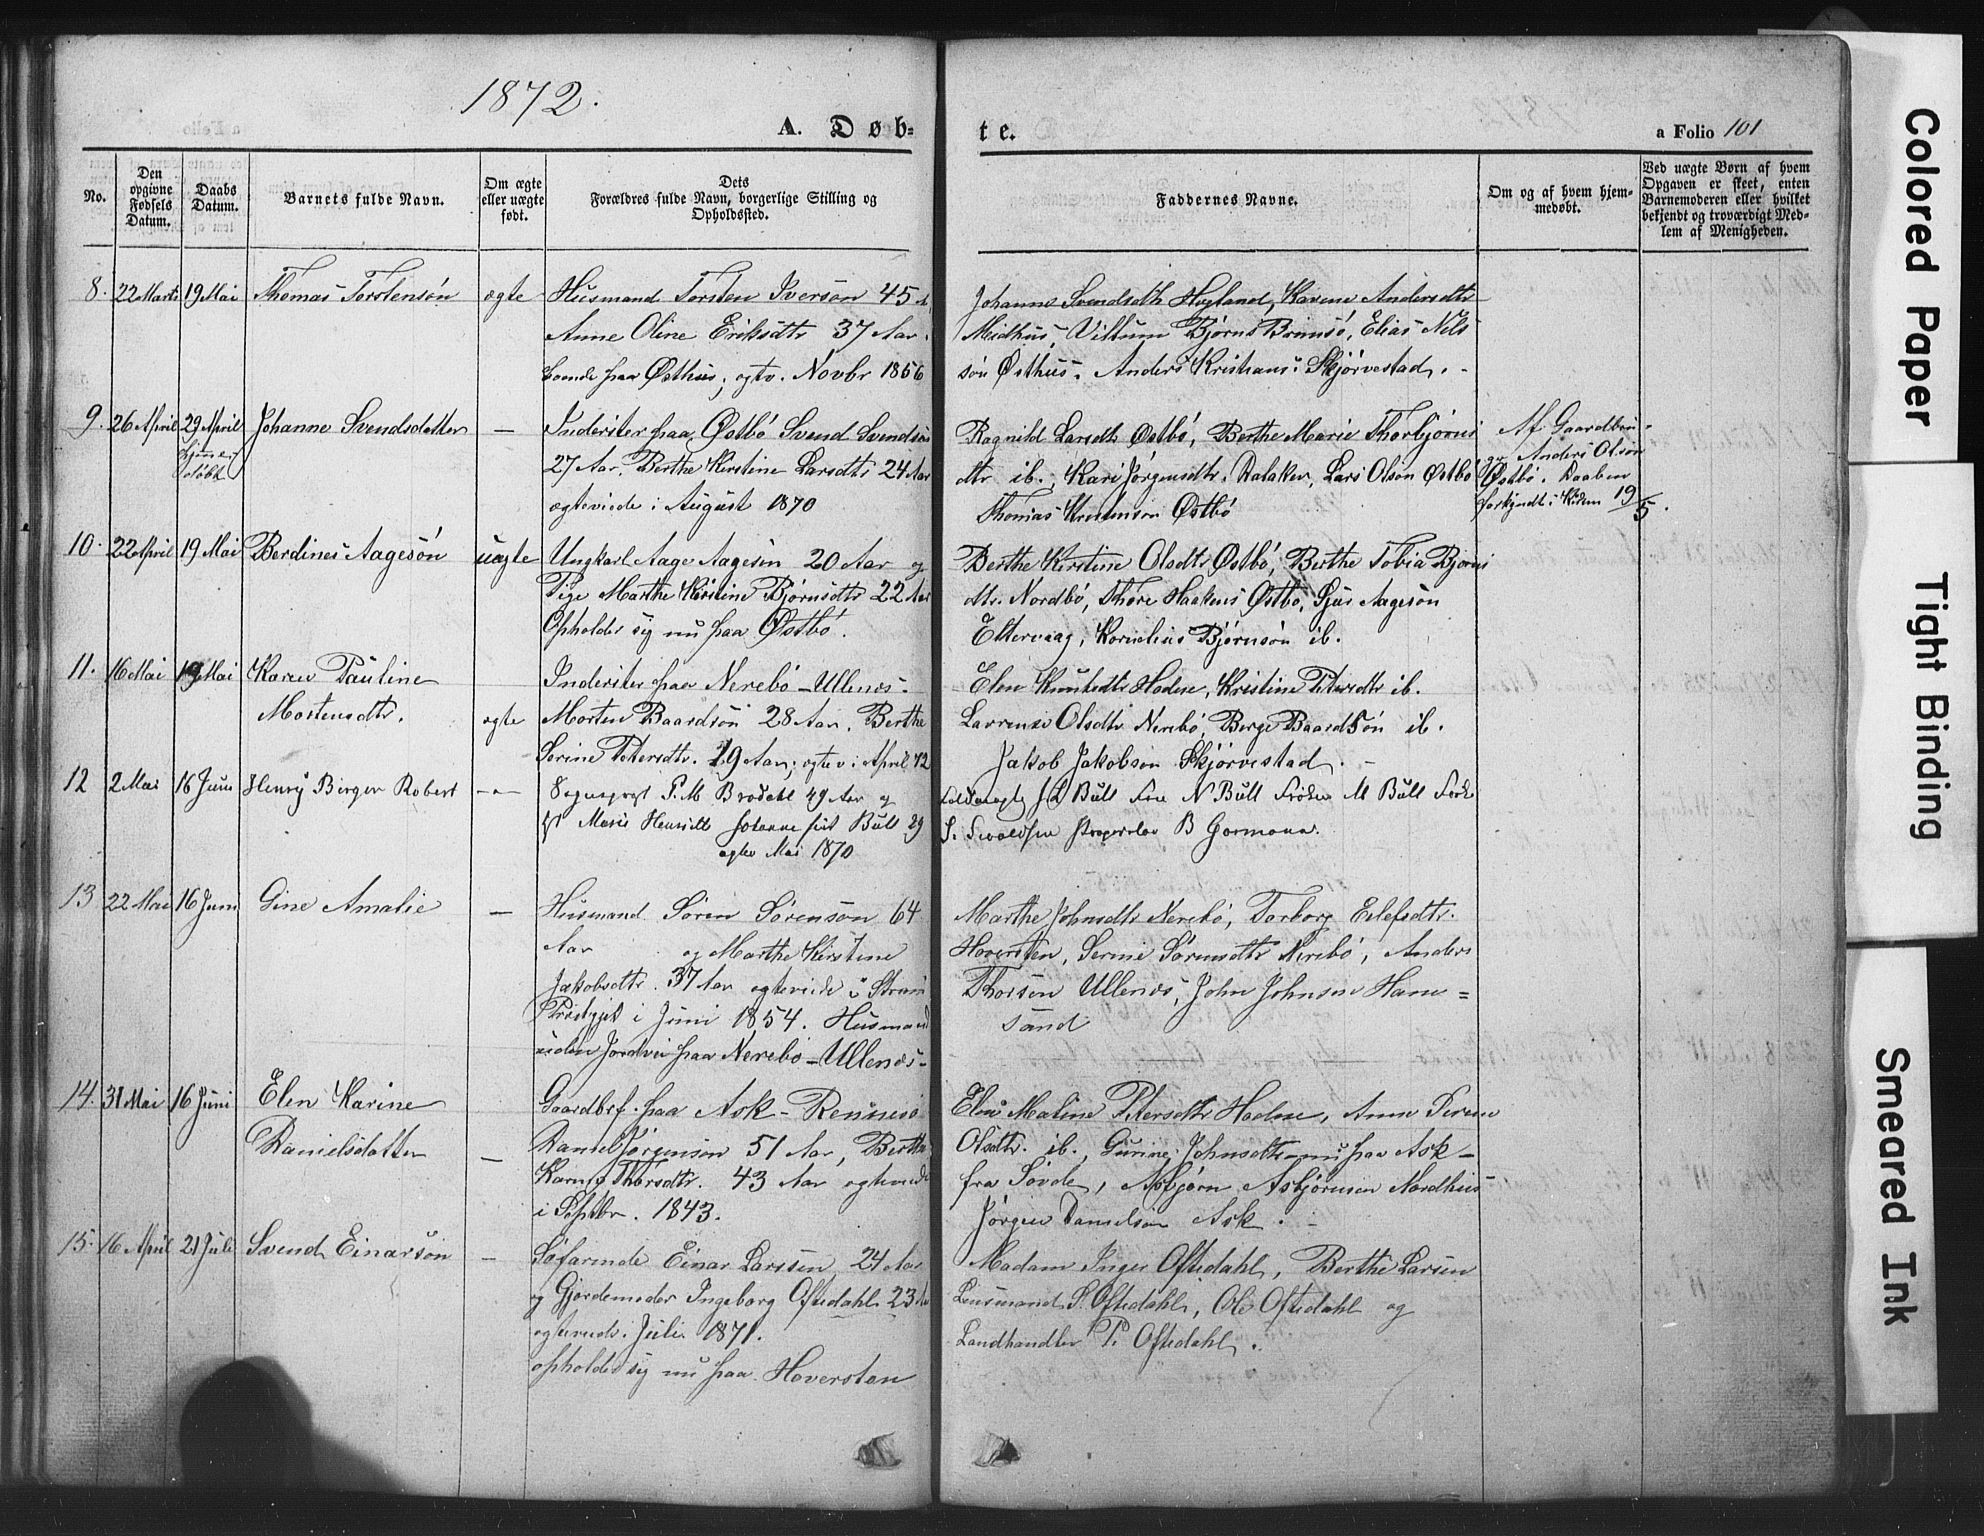 1872.
A. Døb-
te.
a Folio 101
No.
Den opgivne Fødsels Datum.
Daabs Datum.
Barnets fulde Navn.
Om ægte eller uægte født.
Dets Forældres fulde Navn, borgerlige Stilling og Opholdssted.
Faddernes Navne.
Om og af hvem hjem-medøbt.
Ved uægte Børn af hvem Opgaven er skeet, enten Barnemoderen eller hvilket bekjendt og troværdigt Med-lem af Menigheden.
8. 22 Marts 19 Mai Thomas Torstensøn ægte
Husmand Torsten Iversøn 45 A
Anne Oline Eriksdtr 37 Aar.
boende paa Østhus, ægtv. Novbr 1856
Johanne Svendsdtr Hegland, Karene Andersdtr
Meidhus, Villum Bjørns Brimsø, Elias Nils
søn Østhus. Anders Kristians: Skjørvestad.
9. 26 April 29 April Johanne Svendsdatter —
hjemme
døbt
Inderster paa Østbø Svend Svendsøn
27 Aar. Berthe Kirstine Larsdtr 24 Aar
ægteviede i August 1870
Ragnild Larsdtr Østbø, Berthe Marie Thorbjørns
dtr ib., Kari Jørgensdtr. Dalaker, Lars Olsøn Østbø
Thomas Østbø
Af Gaardbru-
ger Anders Olsøn
Østbø. Daaben
forkyndt i Kirken 19/5.
10. 22 April 19 Mai Berdines Aagesøn uægte
Ungkarl Aage Aagesøn 20 Aar og
Pige Marthe Kirstine Bjørnsdtr 22 Aar
Opholder sig nu paa Østbø.
Berthe Kirstine Olsdtr Østbø, Berthe Tobia Bjørns
dtr. Nordbø, Thore Haakens Østbø, Sjur Aagesøn
Eltervaag, Kornelius Bjørnsøn ib.
11. 16 Mai 19 Mai Karen Pauline
Mortensdtr. ægte
Inderster paa Nerebø - Ullenes.
Morten Baardsøn 28 Aar, Berthe
Serine Petersdtr. 29 Aar, ægtev i April 72
Elen Knutsdtr Hodne, Kristine Petersdtr ib.
Lavrense Olsdtr Nerebø, Børge Baardsøn ib.
Jakob Jakobsøn Skjørvestad.
12 2 Mai 16 Juni Henry Birger Robert —"—
Sognepræst P.M Brodahl 49 Aar og
Marie Henriette Johanne født Bull 29
ægtev Mai 1870
J L Bull Fru N Bull Frøken M Bull Frøk
S. B Gormana.
13 22 Mai 16 Juni Gine Amalie —
Husmand Søren Sørensøn 64
Aar og Marthe Kirstine
Jakobsdtr. 37 Aar ægteviede i Strand
Præstegjeld i Juni 1854. Husmand
uden Jordvei paa Nerebø - Ullenes -
Marthe Johnsdtr Nerebø, Torborg Eilefsdtr.
Hoversten, Serine Sørensdtr Nerebø, Anders
Thorsen Ullenes, John Johnsen Ham=
sand
14. 31 Mai 16 Juni Elen Karine
Danielsdatter —
Gaardbr. paa Ask - Rennesø
Daniel Jørgensøn 51 Aar, Berthe
Karine Thorsdtr. 43 Aar ægteviede
i Septbr. 1843.
Elen Maline Petersdtr Hodne, Anne Serine
Olsdtr. ib., Gurine Johnsdtr nu paa Ask -
fra Søvde, Asbjørn Asbjørnsen Nordhus
Jørgen Danielsøn Ask.
15. 16 April 21 Juli Svend Einarsøn —
Søfarende Einar Larsen 24 Aar
og Gjordemoder Ingeborg Oftedahl 23 Aar
ægteviede i Juli 1871.
opholder sig nu paa Hoversten
Madam Inger Oftedahl, Berthe Larsen
Lensmand S. Oftedahl, Ole Oftedahl og
Landhandler P. Oftedahl.
Colored Paper
Tight Binding
Smeared Ink